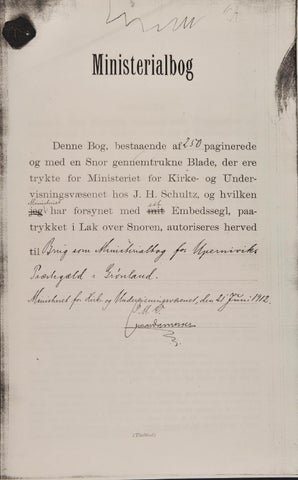 Ministerialbog
Denne Bog, bestaaende af 250 paginerede
og med en Snor gennemtrukne Blade, der ere
trykte for Ministeriet for Kirke- og Under-
visningsvæsenet hos J. H. Schultz, og hvilken
Ministeriet
jeg har forsynet med mit Embedssegl, paa-
trykket i Lak over Snoren, autoriseres herved
til Brug som Ministerialbog for Uperniviks
Præstegæld i Grønland.
Ministeriet for Kirke- og Undervisningsvæsenet, den 21 Juni 1912.